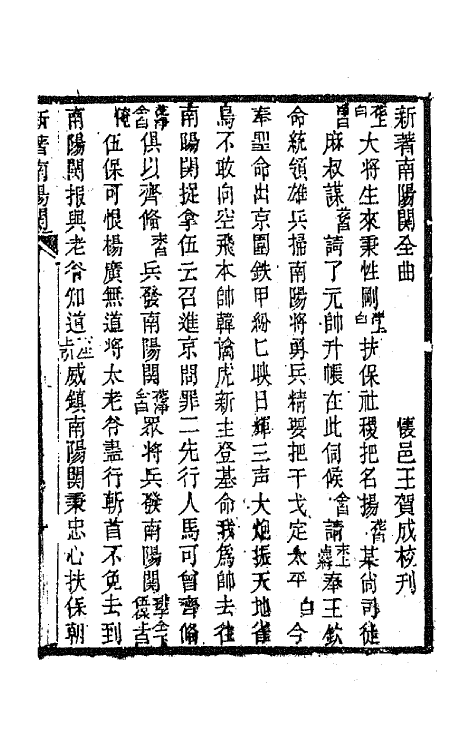 新著南陽関全曲　懐邑王賀成校刊
大将生來秉性剛 扶保社稷把名揚 某尚司徒
麻叔謀 請了元帥升帳在此伺候 請 奉王欽
命統領雄兵掃南陽将勇兵精要把干戈定太平 白 今
奉聖命出京圍鉄甲紛匕映日輝三声大炮振天地雀
鳥不敢向空飛本帥韓擒虎新主登基命我爲帥去往
南陽関捉拿伍云召進京問罪二先行人馬可曾齊俻
俱以齊俻 兵發南陽関 眾将兵發南陽関
俺伍保可恨楊廣無道将太老爷盡行斬首不免去到
南陽関报與老爷知道 威鎮南陽関秉忠心扶保朝
新著南陽関